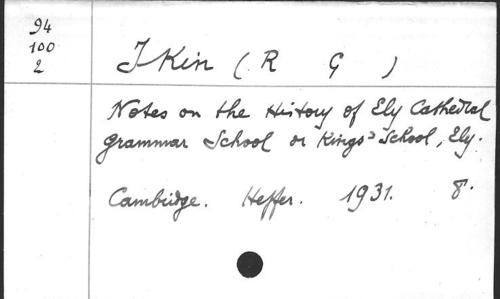 94
100
2
Ikin (R G )
Notes on the History of Ely Cathedral
Grammar School or Kings' School, Ely.
Cambridge. Heffer. 1931. 8°.